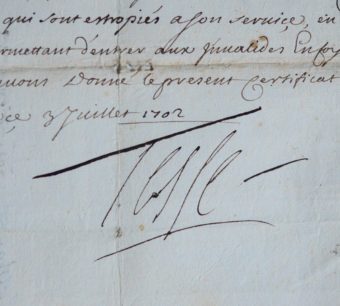 qui sont estropiés a son service, en
ermettant d'entrer aux Invalides En foy
avons Donné le present Certificat
ce 3 Juillet 1702
Tessé